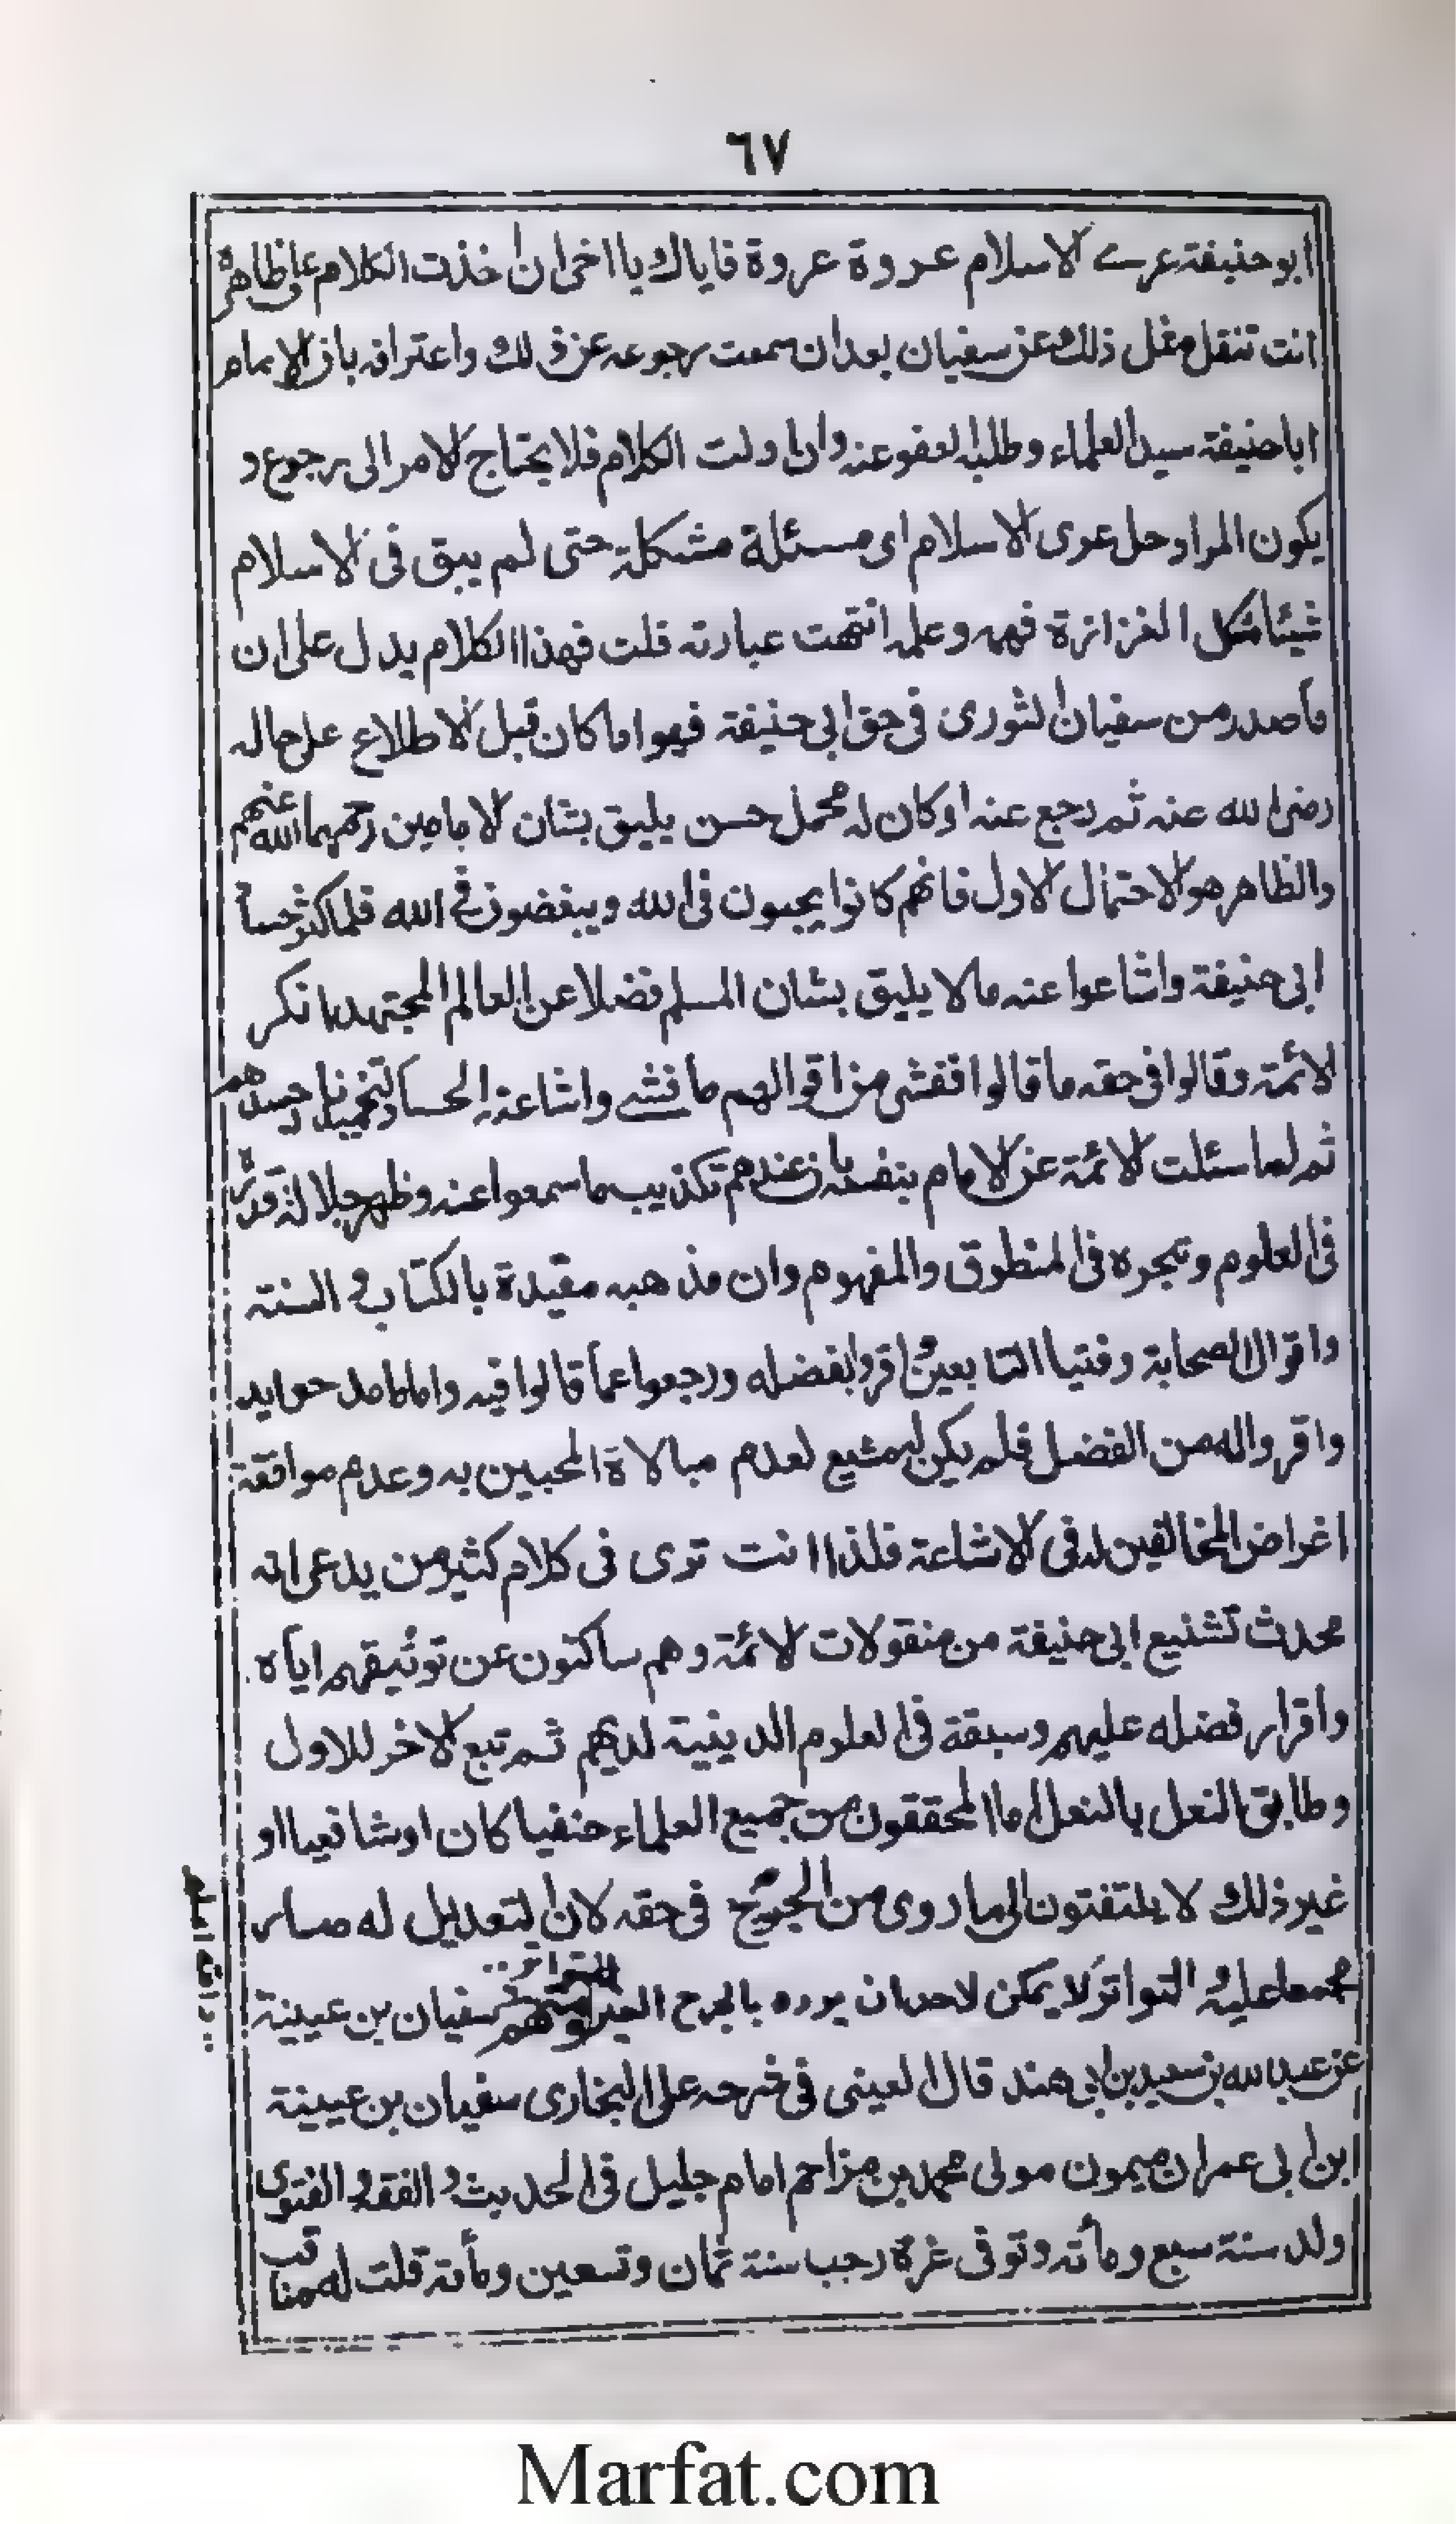 ٦٧
ابو حنيفة عرے الاسلام عروة عروة فاياك يا اخى ان اخذت الكلام على ظاهره
انت تنقل مثل ذلك عن سفيان بعد ان سمعت رجوعه عن ذلك واعترافه بان الامام
ابا حنيفة سيد العلماء وطلبه العفو عنه وان اولت الكلام فلا يحتاج الامر الى رجوع و
يكون المراد حل عرى الاسلام اى مسئلة مشكلة حتى لم يبق فى الاسلام
شيئا مشكل الغزازة فهمه وعلمه انتهت عبارته قلت فهذا الكلام يدل على ان
ما صدر من سفيان الثورى فى حق ابى حنيفة فهو اما كان قبل الاطلاع على حاله
رضى الله عنه ثم رجع عنه او كان له محمل حسن يليق بشان الامامين رحمهما الله عنهم
والظاهر هو الاحتمال الاول فانهم كانوا يحبون فى الله ويبغضون فى الله فلما كثر حساد
ابى حنيفة واشاعوا عنه ما لا يليق بشان المسلم فضلا عن العالم المجتهد انكر
الائمة وقالوا فى حقه ما قالوا ففشى من اقوالهم ما فشے واشاعته الحساد حسدهم
ثم لما سئلت الائمة عن الامام بنفسه بان عندهم تكذيب ما سمعوا عنه وظهر جلالة قدره
فى العلوم وتبحره فى المنطوق والمفهوم وان مذهبه مقيدة بالكتاب و السنة
واقوال الصحابة وفتيا التابعين اقروا بفضله ورجعوا عما قالوا فيه واما ما مدحوا به
واقروا له من الفضل فلم يكن له مشيع لعدم مبالاة المحبين به وعدم موافقة
اغراض المخالفين له فى الاشاعة فلذا انت ترى فى كلام كثير من يدعى انه
محدث تشنيع ابى حنيفة من منقولات الائمة وهم ساكتون عن توثيقهم اياه
واقرار فضله عليهم وسبقة فى العلوم الدينية لديهم ثم تبع الاخر للاول
وطابق النعل بالنعل اما المحققون من جميع العلماء حنفيا كان او شافعيا او
غير ذلك لا يلتفتون الى ما روى من الجرح فى حقه لان التعديل له صار
مجمعا عليه و التواتر لا يمكن لاحد ان يرده بالجرح الغير المتواتر ومنهم سفيان بن عيينة
عن عبد الله بن سعيد بن ابى هند قال العينى فى شرحه على البخارى سفيان بن عيينة
ابن ابى عمران ميمون مولى محمد بن مزاحم امام جليل فى الحديث و الفقه و الفتوى
ولد سنة سبع ومأته وتوفى غرة رجب سنة ثمان وتسعين ومأته قلت له مناقب
Marfat.com